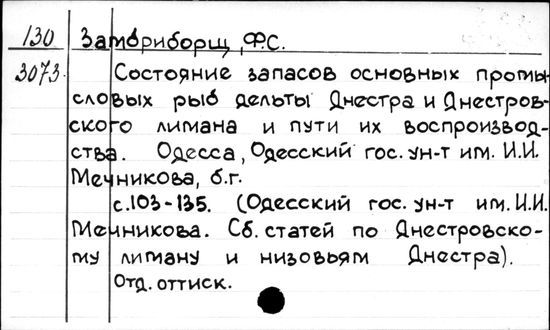 130 Замбриборщ, Ф.С.
3073. Состояние запасов основных промы-
словых рыб дельты Днестра и Днестров-
ского лимана и пути их воспроизвод-
ства. Одесса, Одесский гос. ун-т им. И.И.
Мечникова, б.г.
с.103-135. (Одесский гос. ун-т им. И.И.
Мечникова. Сб. статей по Днестровско-
му лиману и низовьям Днестра).
Отд. оттиск.